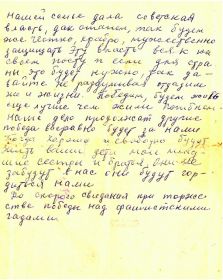 нашей семье дала советская
власть, как отнем, так будем
же честно, храбро, мужественно
защищать эту власть всяк на
своем посту и если для стра-
ны это будет нужно, так да-
вайте не задумывая отдадим
за жизни. Победим, будем жить
еще лучше чем жили. Погибнем
наше дело продолжат другие
победа всеравно будет за нами
тогда хорошо и свободно будут
жить ваши дети мои млад-
шие сестры и братья, они не
забудут в нас они будут гор-
диться нами
До скорого свидания при торже-
стве победы над фашистскими
гадами